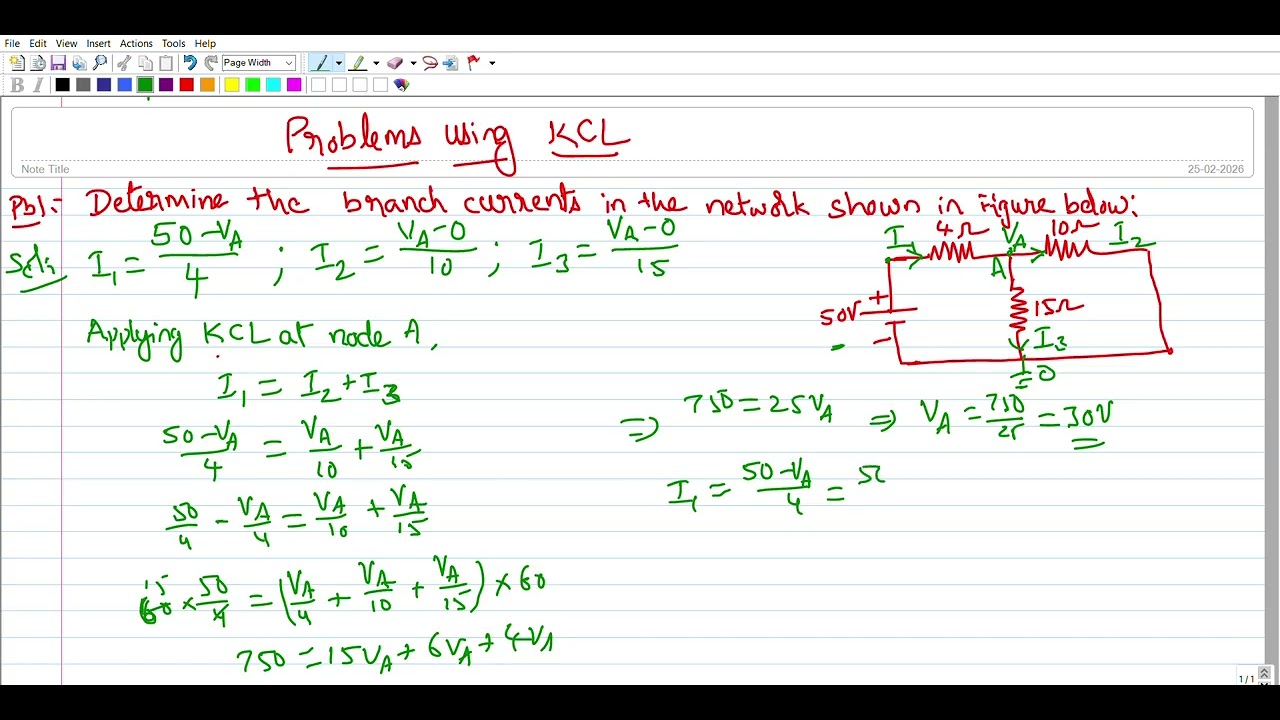 File Edit View Insert Actions Tools Help
Page Width
B I
Problems using KCL
Note Title
25-02-2026
Pb1:- Determine the branch currents in the network shown in Figure below:
Soln: I₁ = (50-V_A)/4 ; I₂ = (V_A-0)/10 ; I₃ = (V_A-0)/15
I₁ 4Ω V_A 10Ω I₂
A
50V + -
15Ω
I₃
0
Applying KCL at node A,
I₁ = I₂ + I₃
(50-V_A)/4 = V_A/10 + V_A/15
50/4 - V_A/4 = V_A/10 + V_A/15
15
60 × 50/4 = (V_A/4 + V_A/10 + V_A/15) × 60
750 = 15V_A + 6V_A + 4V_A
⇒ 750 = 25V_A ⇒ V_A = 750/25 = 30V
I₁ = (50-V_A)/4 = 50
1/1